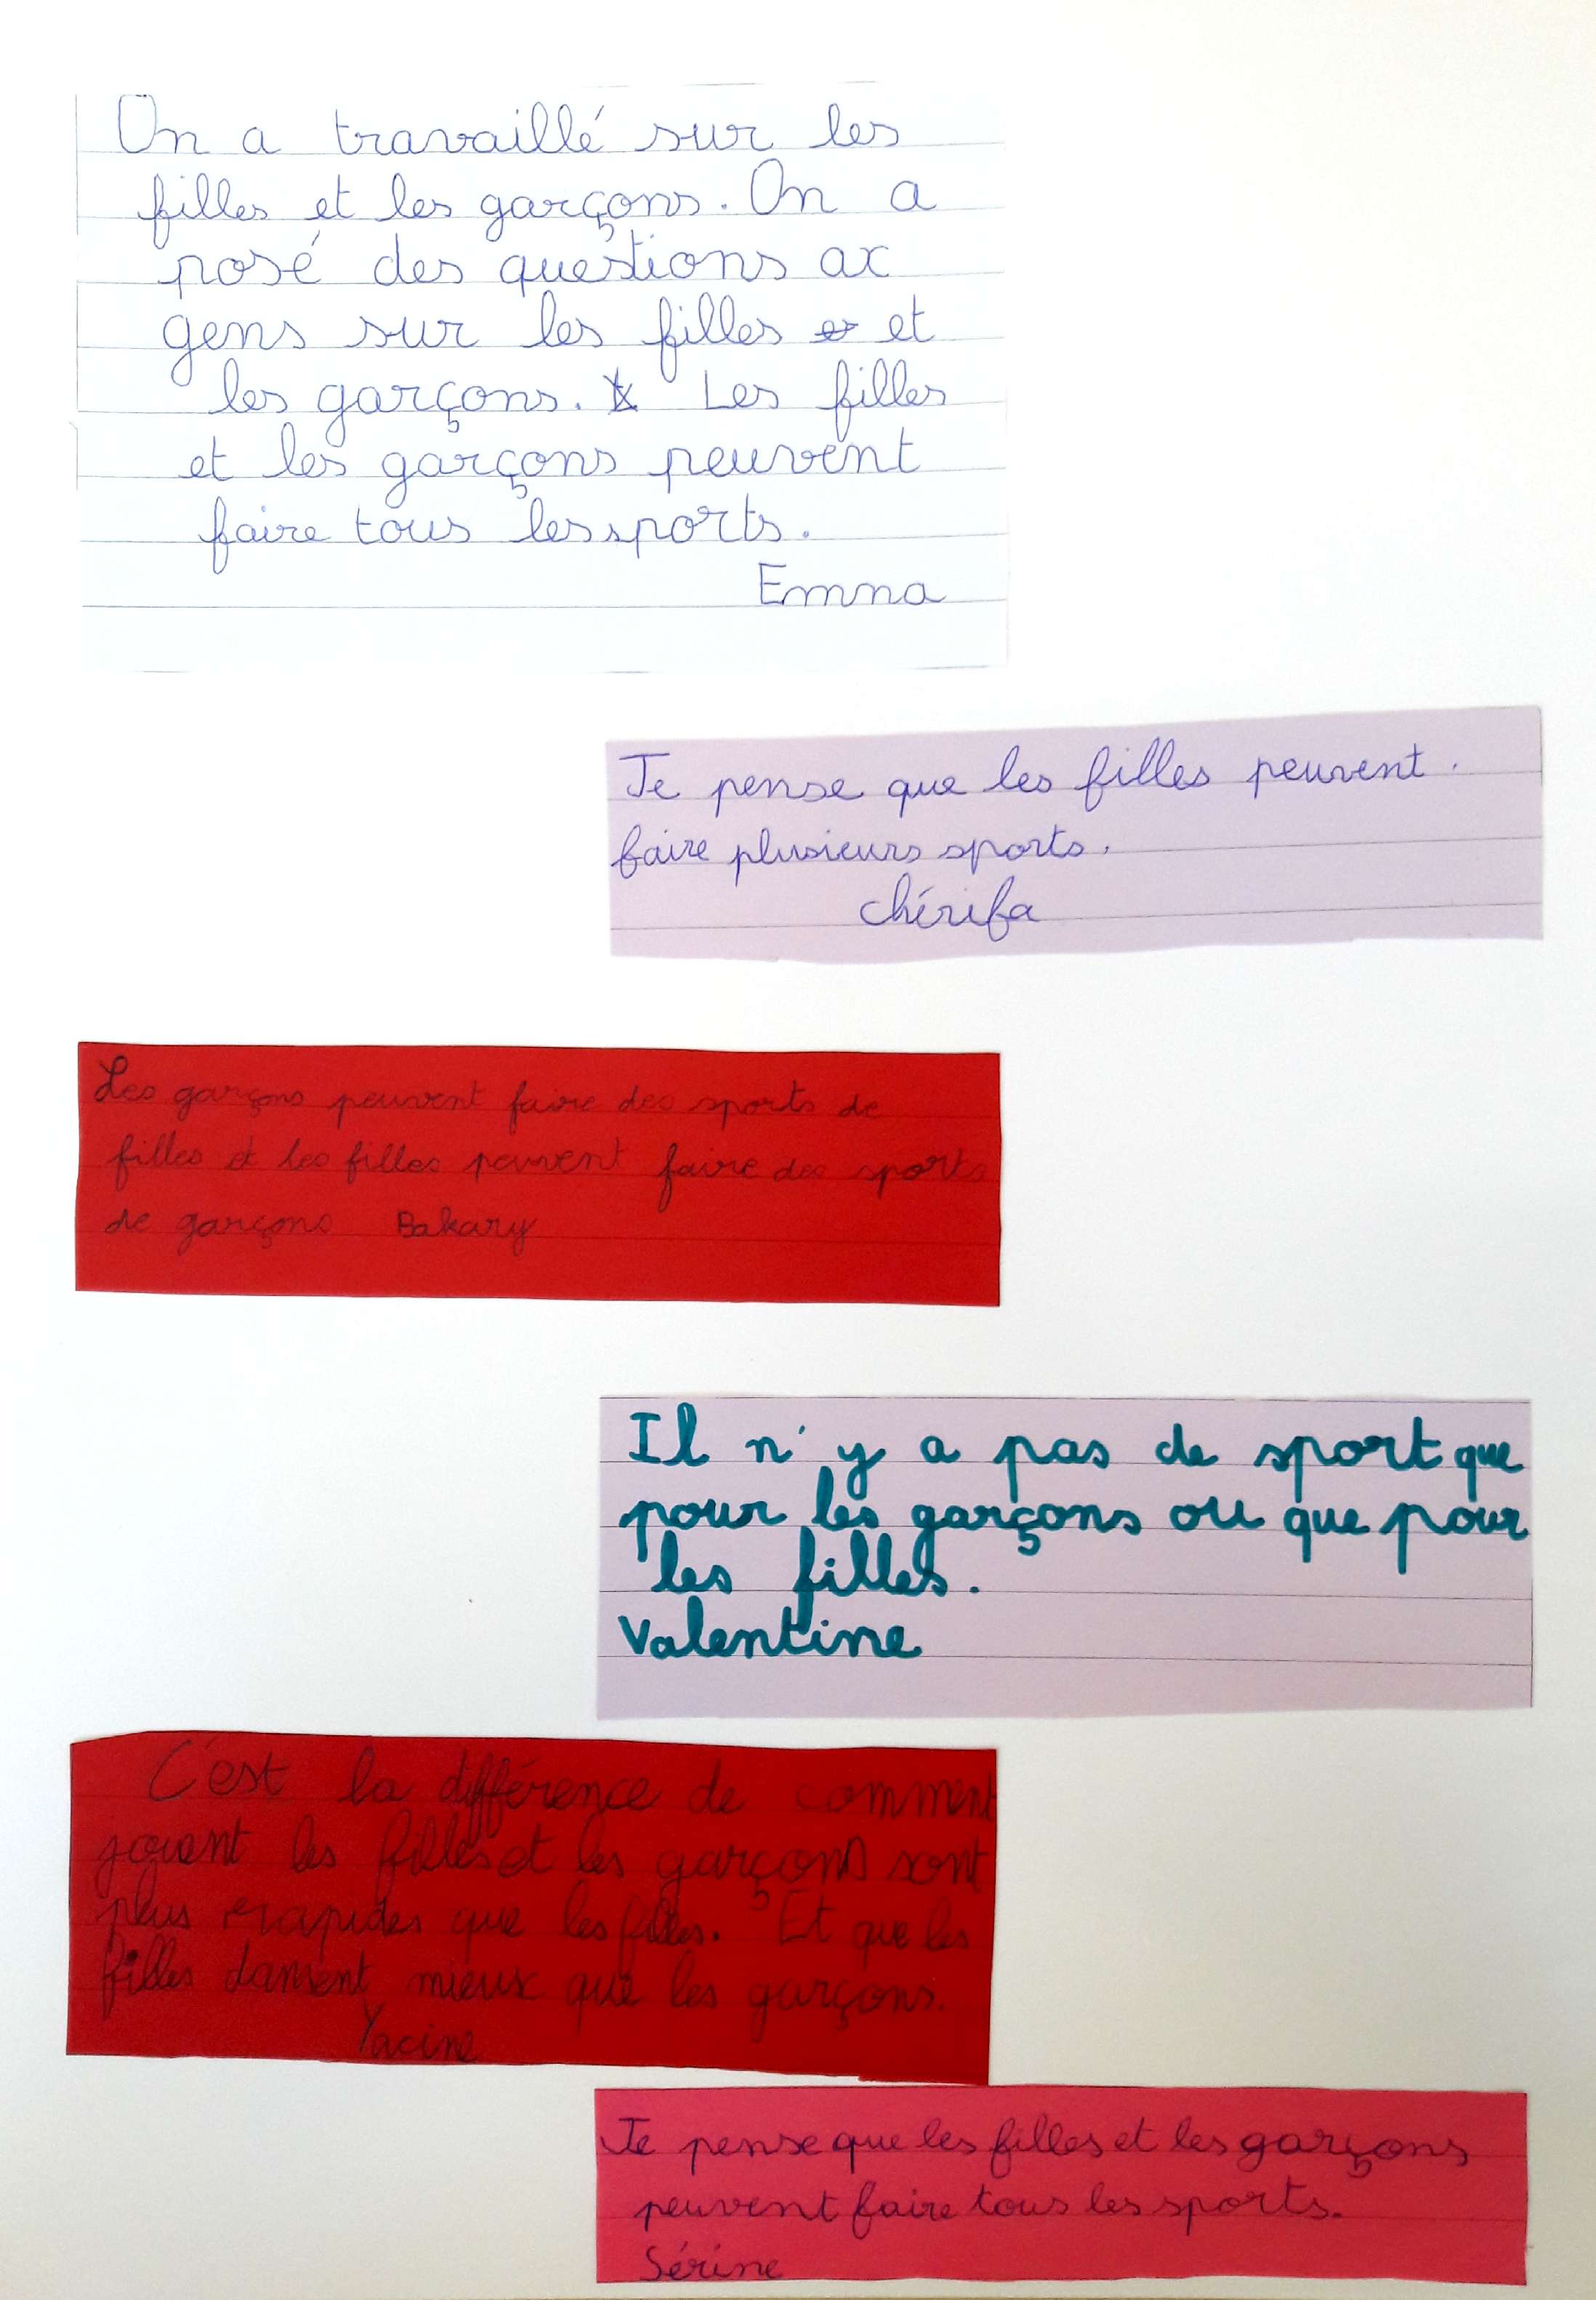 On a travaillé sur les
filles et les garçons. On a
posé des questions ax
gens sur les filles et
les garçons. Les filles
et les garçons peuvent
faire tous les sports.
Emna
Je pense que les filles peuvent.
faire plusieurs sports.
chérifa
Les garçons peuvent faire des sports de
filles et les filles peuvent faire des sports
de garçons Bakary
Il n'y a pas de sport que
pour les garçons ou que pour
les filles.
Valentine
C'est la différence de comment
jouent les filles et les garçons sont
plus rapides que les filles. Et que les
filles dansent mieux que les garçons.
Yacine
Je pense que les filles et les garçons
peuvent faire tous les sports.
Sérine